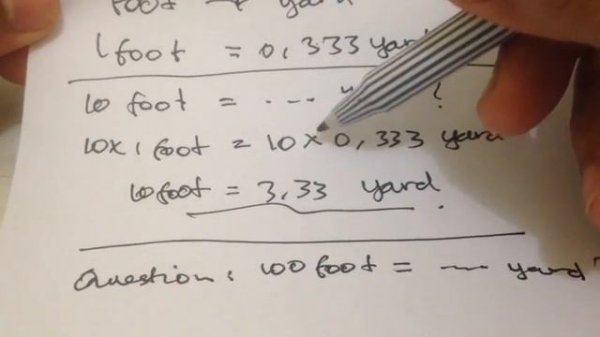 foot yard
1 foot = 0,333 yard
10 foot = --- ?
10x1 foot = 10x0,333 yard
10 foot = 3,33 yard.
Question: 100 foot = --- yard?